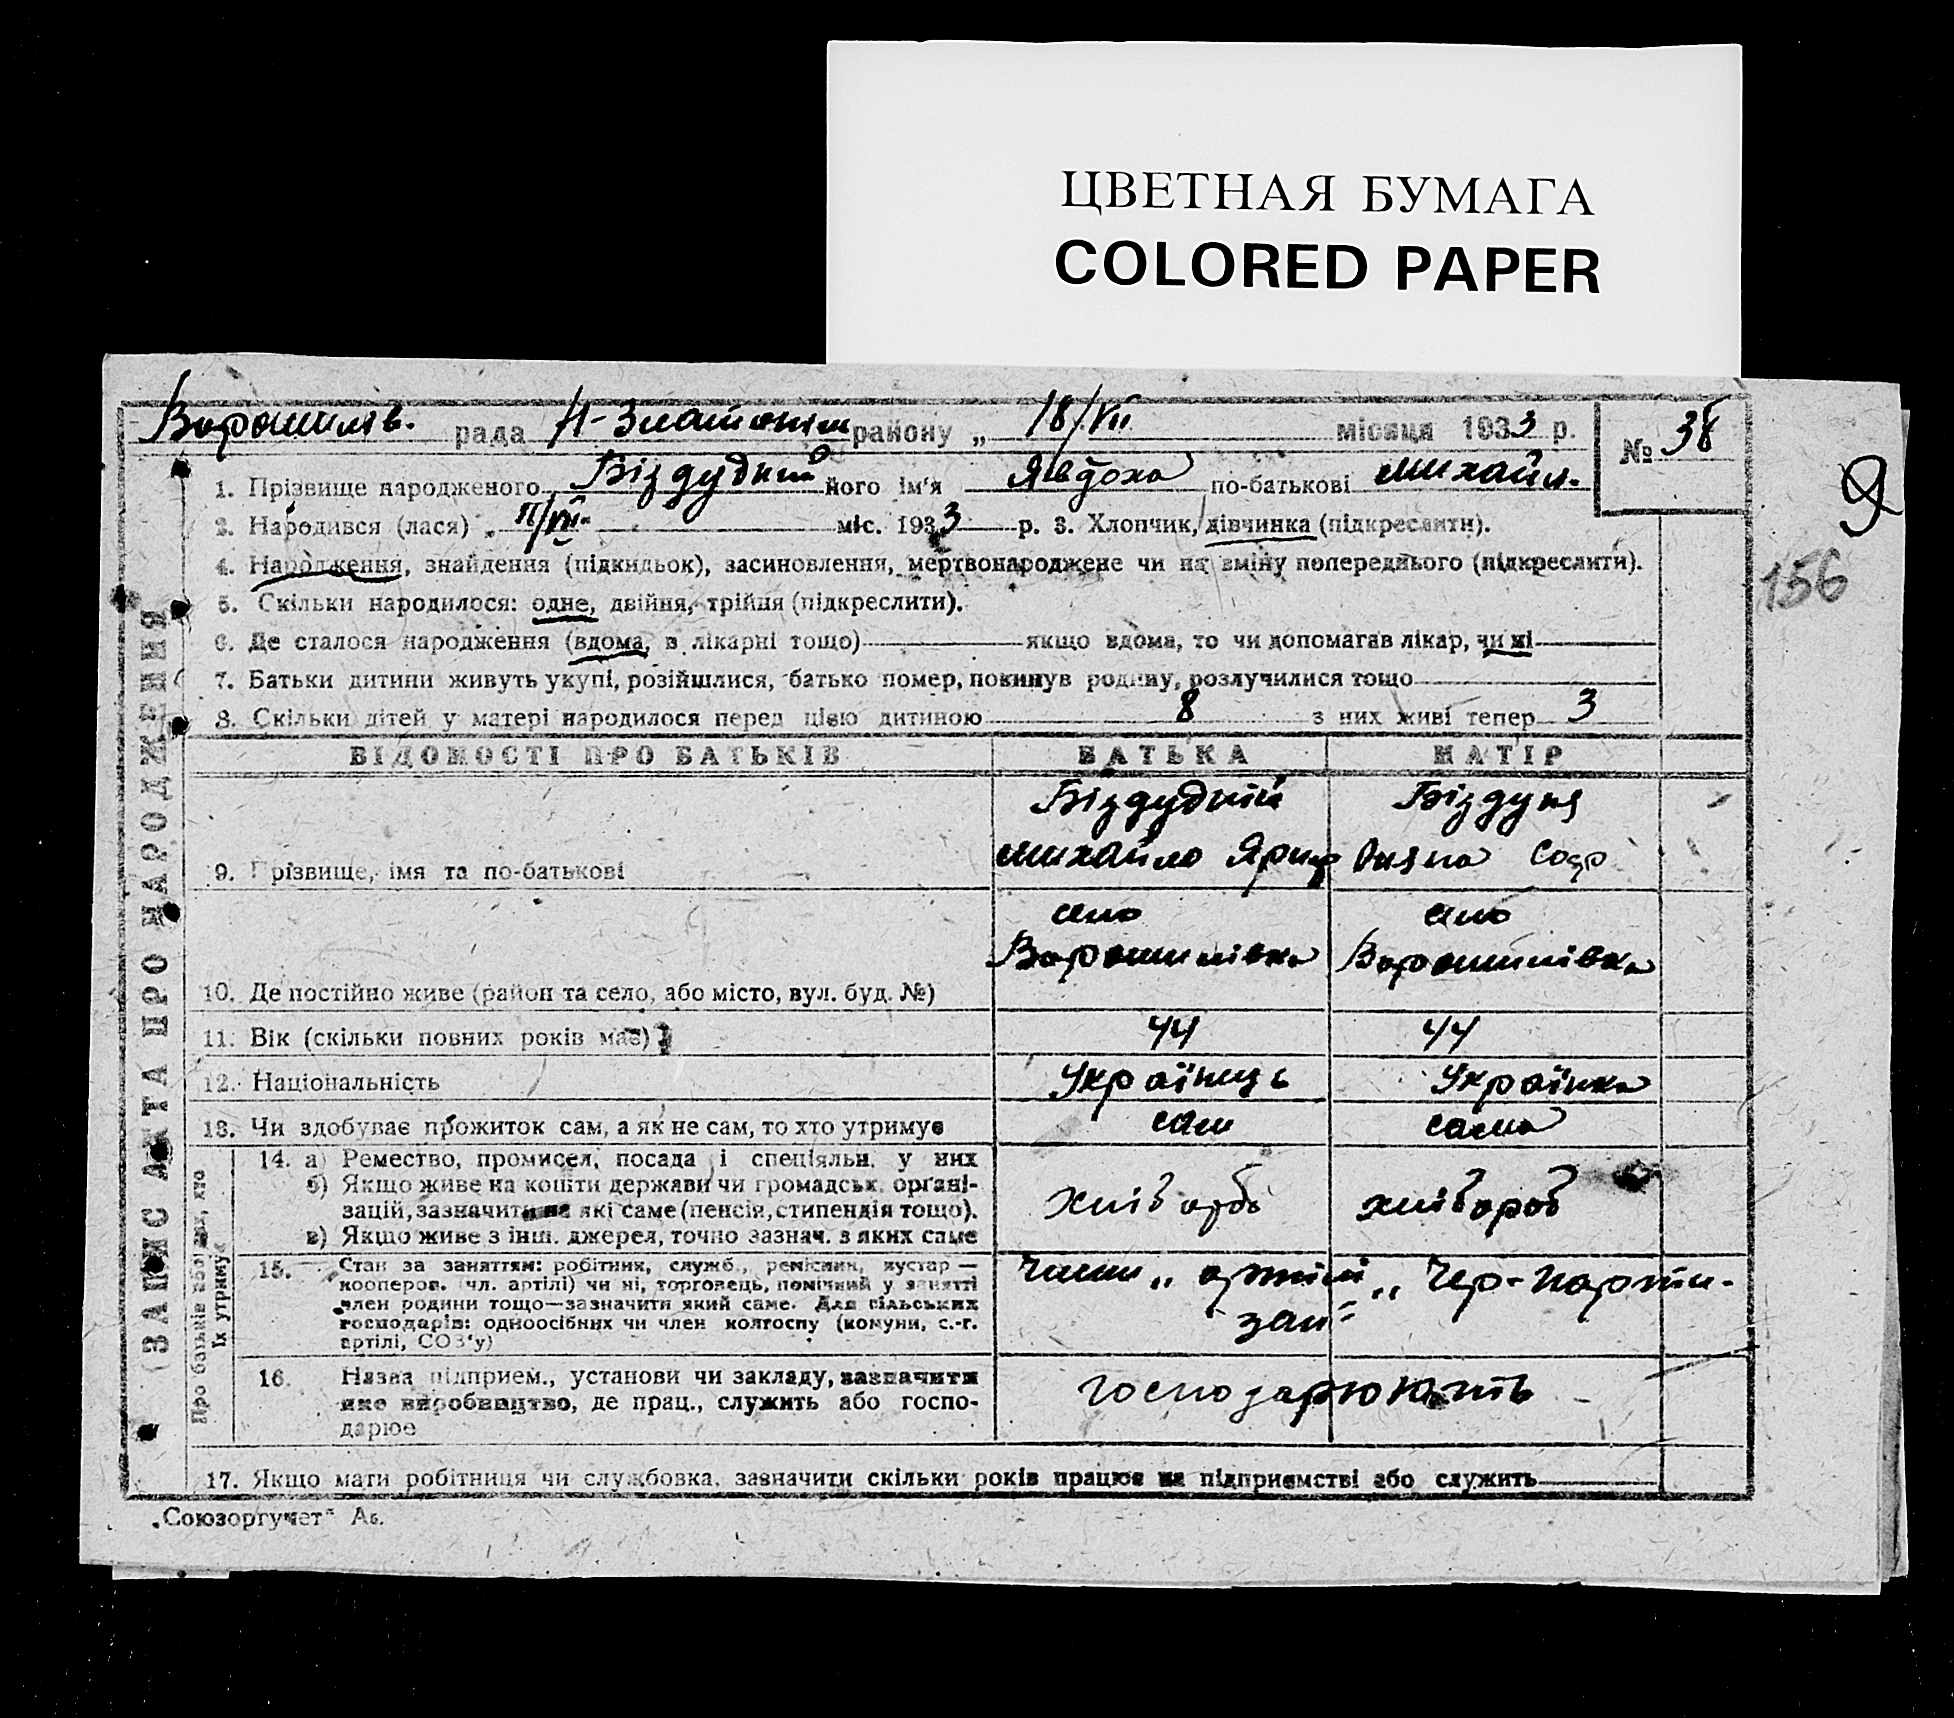 ЦВЕТНАЯ БУМАГА
COLORED PAPER
Ворошилів. рада Н-Златопіл району „ 18/VII місяця 1933 р. № 38
1. Прізвище народженого Біздудний його ім'я Явдоха по-батькові Михайл.
2. Народився (лася) „ П/VII. міс. 1933 р. 3. Хлопчик, дівчинка (підкреслити).
9
156
4. Народження, знайдення (підкидьок), засиновлення, мертвонароджене чи на зміну попереднього (підкреслити).
5. Скільки народилося: одне, двійня, трійня (підкреслити).
6. Де сталося народження (вдома, в лікарні тощо) якщо вдома, то чи допомагав лікар, чи ні
7. Батьки дитини живуть укупі, розійшлися, батько помер, покинув родину, розлучилися тощо
8. Скільки дітей у матері народилося перед цією дитиною 8 з них живі тепер 3
ВІДОМОСТІ ПРО БАТЬКІВ БАТЬКА МАТІР
Біздудний Біздудня
9. Прізвище, імя та по-батькові Михайло
село село
Ворошилівка Ворошилівка
10. Де постійно живе (район та село, або місто, вул. буд. №)
11. Вік (скільки повних років має) 44 44
12. Національність Українець Українка
13. Чи здобуває прожиток сам, а як не сам, то хто утримує сам сама
14. а) Ремество, промисел, посада і спеціяльн. у них
б) Якщо живе на кошти держави чи громадськ. органі-
зацій, зазначити на які саме (пенсія, стипендія тощо). хлібороб хлібороб
в) Якщо живе з інш. джерел, точно зазнач. з яких саме
15. Стан за заняттям: робітник, служб., ремісник, кустар —
кооперов. (чл. артілі) чи ні, торговець, помічний у занятті
член родини тощо—зазначити який саме. Для сільських
господарів: одноосібних чи член колгоспу (комуни, с.-г.
артілі, СОЗ'у)
Члени „ артілі „ Чер-парти-
зан"
16. Назва підприєм., установи чи закладу, зазначити
яке виробництво, де прац., служить або госпо-
дарює
господарюють
17. Якщо мати робітниця чи службовка, зазначити скільки років працює на підприємстві або служить
(ЗАПИС АКТА ПРО НАРОДЖЕННЯ
Про батьків або тих, хто
їх утримує
„Союзоргучет" Аб.